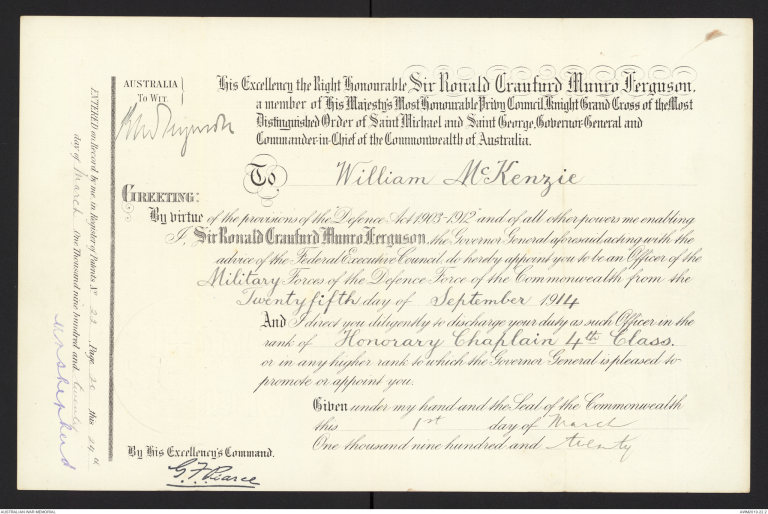 AUSTRALIA
To Wit.
His Excellency the Right Honourable Sir Ronald Craufurd Munro Ferguson,
a member of His Majesty's Most Honourable Privy Council, Knight Grand Cross of the Most
Distinguished Order of Saint Michael and Saint George, Governor-General and
Commander-in-Chief of the Commonwealth of Australia.
To William McKenzie
GREETING:
By virtue of the provisions of the Defence Act 1903-1912 and of all other powers me enabling
I, Sir Ronald Craufurd Munro Ferguson, the Governor General aforesaid acting with the
advice of the Federal Executive Council, do hereby appoint you to be an Officer of the
Military Forces of the Defence Force of the Commonwealth from the
Twenty fifth day of September 1914
And I direct you diligently to discharge your duty as such Officer in the
rank of Honorary Chaplain 4th Class.
or in any higher rank to which the Governor General is pleased to
promote or appoint you.
Given under my hand and the Seal of the Commonwealth
this 1st day of March
One thousand nine hundred and twenty
By His Excellency's Command.
G.F. Pearce
ENTERED on Record by me in Register of Patents No 22 Page 20 this 29th
day of March One Thousand nine hundred and twenty
M S Shepherd
AUSTRALIAN WAR MEMORIAL